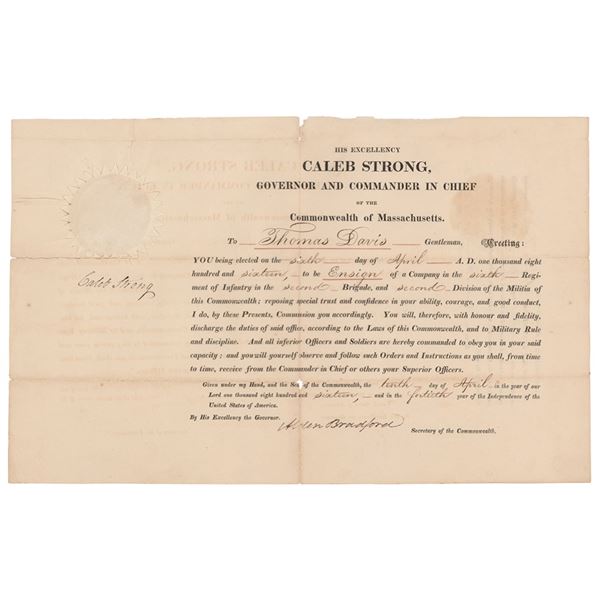 HIS EXCELLENCY
CALEB STRONG,
GOVERNOR AND COMMANDER IN CHIEF
OF THE
Commonwealth of Massachusetts.
To Thomas Davis Gentleman, Greeting:
YOU being elected on the sixth day of April A. D. one thousand eight
hundred and sixteen, to be Ensign of a Company in the sixth Regi-
ment of Infantry in the second Brigade, and second Division of the Militia of
this Commonwealth; reposing special trust and confidence in your ability, courage, and good conduct,
I do, by these Presents, Commission you accordingly. You will, therefore, with honour and fidelity,
discharge the duties of said office, according to the Laws of this Commonwealth, and to Military Rule
and discipline. And all inferior Officers and Soldiers are hereby commanded to obey you in your said
capacity; and you will yourself observe and follow such Orders and Instructions as you shall, from time
to time, receive from the Commander in Chief or others your Superior Officers.
Given under my Hand, and the Seal of the Commonwealth, the tenth day of April in the year of our
Lord one thousand eight hundred and sixteen, and in the fortieth year of the Independence of the
United States of America.
By His Excellency the Governor.
Alden Bradford
Secretary of the Commonwealth.
Caleb Strong